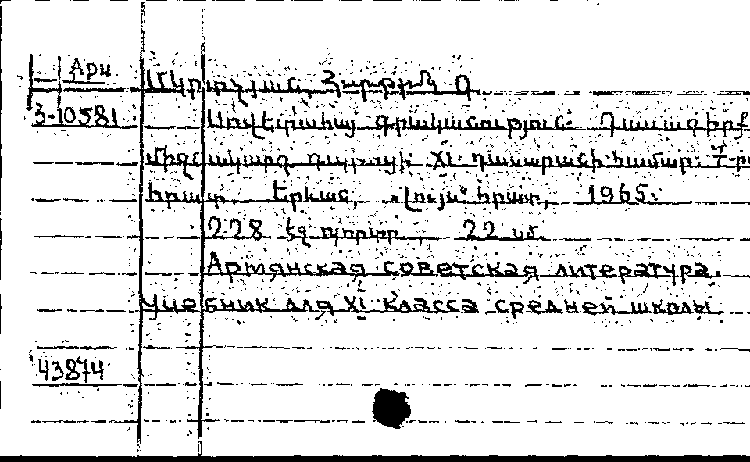 Арм
Մկրտչյան, Հարթին Գ.
3-10581 Սովետահայ գրականություն: Դասագիրք
միջնակարգ դպրոցի XI դասարանի համար: 7-րդ
հրատ. Երևան, „Լույս“ հրատ, 1965:
228 էջ պորտր, 22 սմ.
Армянская советская литература.
Учебник для XI класса средней школы
43874